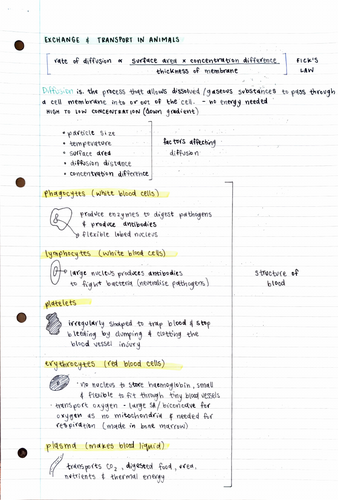 EXCHANGE & TRANSPORT IN ANIMALS
rate of diffusion ∝ surface area x concentration difference
thickness of membrane
FICK'S LAW
Diffusion is the process that allows dissolved/gaseous substances to pass through
a cell membrane into or out of the cell. - no energy needed
HIGH TO LOW CONCENTRATION (down gradient)
• particle size
• temperature
• surface area
• diffusion distance
• concentration difference
factors affecting
diffusion
phagocytes (white blood cells)
produce enzymes to digest pathogens
& produce antibodies
flexible lobed nucleus
lymphocytes (white blood cells)
large nucleus produces antibodies
to fight bacteria (neutralise pathogens)
platelets
irregularly shaped to trap blood & stop
bleeding by clumping & clotting the
blood vessel injury
erythrocytes (red blood cells)
• no nucleus to store haemoglobin, small
& flexible to fit through tiny blood vessels
- transport oxygen - large SA/biconcave for
oxygen as no mitochondria & needed for
respiration (made in bone marrow)
plasma (makes blood liquid)
transports CO2, digested food, urea,
nutrients & thermal energy
structure of
blood